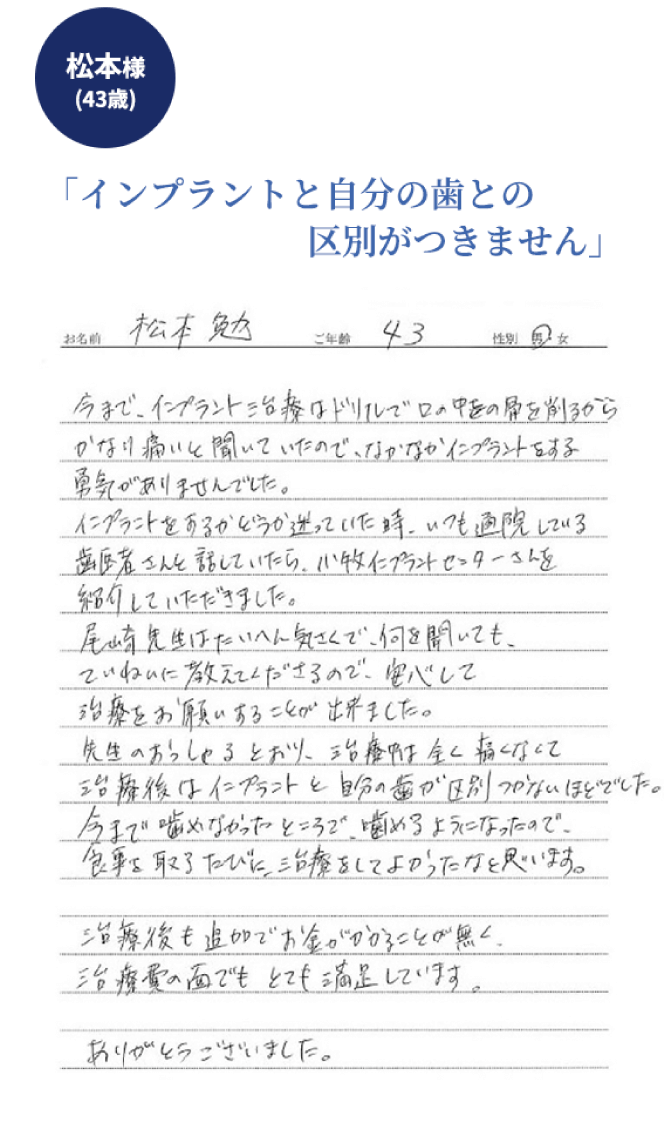 松本様
(43歳)
「インプラントと自分の歯との
区別がつきません」
お名前 松本 勉 ご年齢 43 性別 男・女
今まで、インプラント治療はドリルで口の中の骨を削るから
かなり痛いと聞いていたので、なかなかインプラントをする
勇気がありませんでした。
インプラントをするかどうか迷っていた時、いつも通院している
歯医者さんと話していたら、小牧インプラントセンターさんを
紹介していただきました。
尾崎先生はたいへん気さくで、何を聞いても、
ていねいに教えてくださるので、安心して
治療をお願いすることが出来ました。
先生のおっしゃるとおり、治療中は全く痛くなくて
治療後はインプラントと自分の歯が区別つかないほどでした。
今まで噛めなかったところで、噛めるようになったので、
食事を取るたびに、治療をしてよかったなと思います。
治療後も追加でお金がかかることが無く、
治療費の面でもとても満足しています。
ありがとうございました。